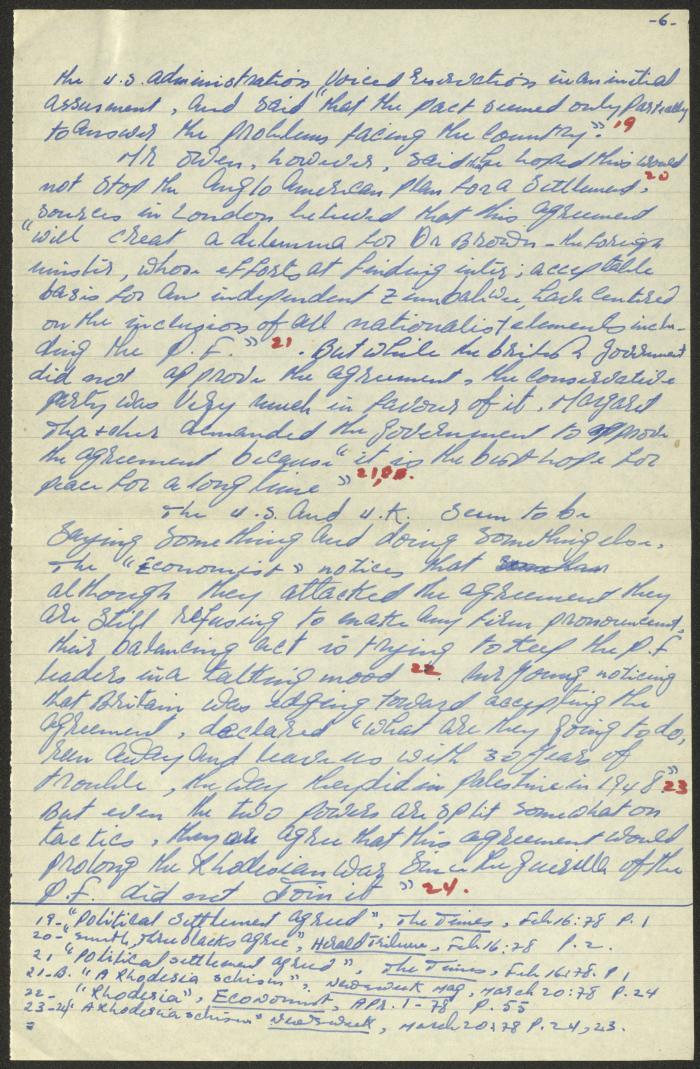 -6-
the U.S. administration, voiced reservations in an initial
assesment, and said "that the pact seemed only partially
to answer the problems facing the country." 19
Mr Owen, however, said he hoped this would
not stop the Anglo American plan for a settlement. 20
sources in London belived that this agreement
"will creat a dilemma for Dr Brown - the foreign
minister, whose efforts at finding inter; acceptable
basis for an independent Zimbabwe, had centered
on the inclusion of all nationalist elements inclu-
ding the P.F." 21. But while the british government
did not approve the agreement, the conservative
party was very much in favour of it. Margaret
Thatcher demanded the government to approve
the agreement because "it is the best hope for
peace for a long time" 21,B.
The U.S. and U.K. seem to be
saying something and doing something else.
The "Economist" notices that
although they attacked the agreement they
are still refusing to make any firm pronouncement,
their balancing act is trying to keep the P.F
leaders in a talking mood 22. Mr Young noticing
that Britain was edging toward accepting the
agreement, declared "what are they going to do,
run away and leave us with 30 years of
trouble, the way they did in palestine in 1948" 23
But even the two powers are split somewhat on
tactics, they are agree that this agreement would
prolong the Rhodesian war since the guerilla of the
P.F. did not Join it" 24.
19- "Political settlement agreed", The Times, Feb 16:78 P. 1
20- "Smith, three blacks agree", Herald Tribune, Feb.16:78 P. 2.
21 "Political settlement agreed", The Times, Feb 16:78. P 1
21-B. "A Rhodesia schism", Newsweek Mag, March 20:78 P. 24
22- "Rhodesia", Economist, APR. 1-78 P. 55
23-24 "A Rhodesia schism" Newsweek, March 20:78 P. 24, 23.